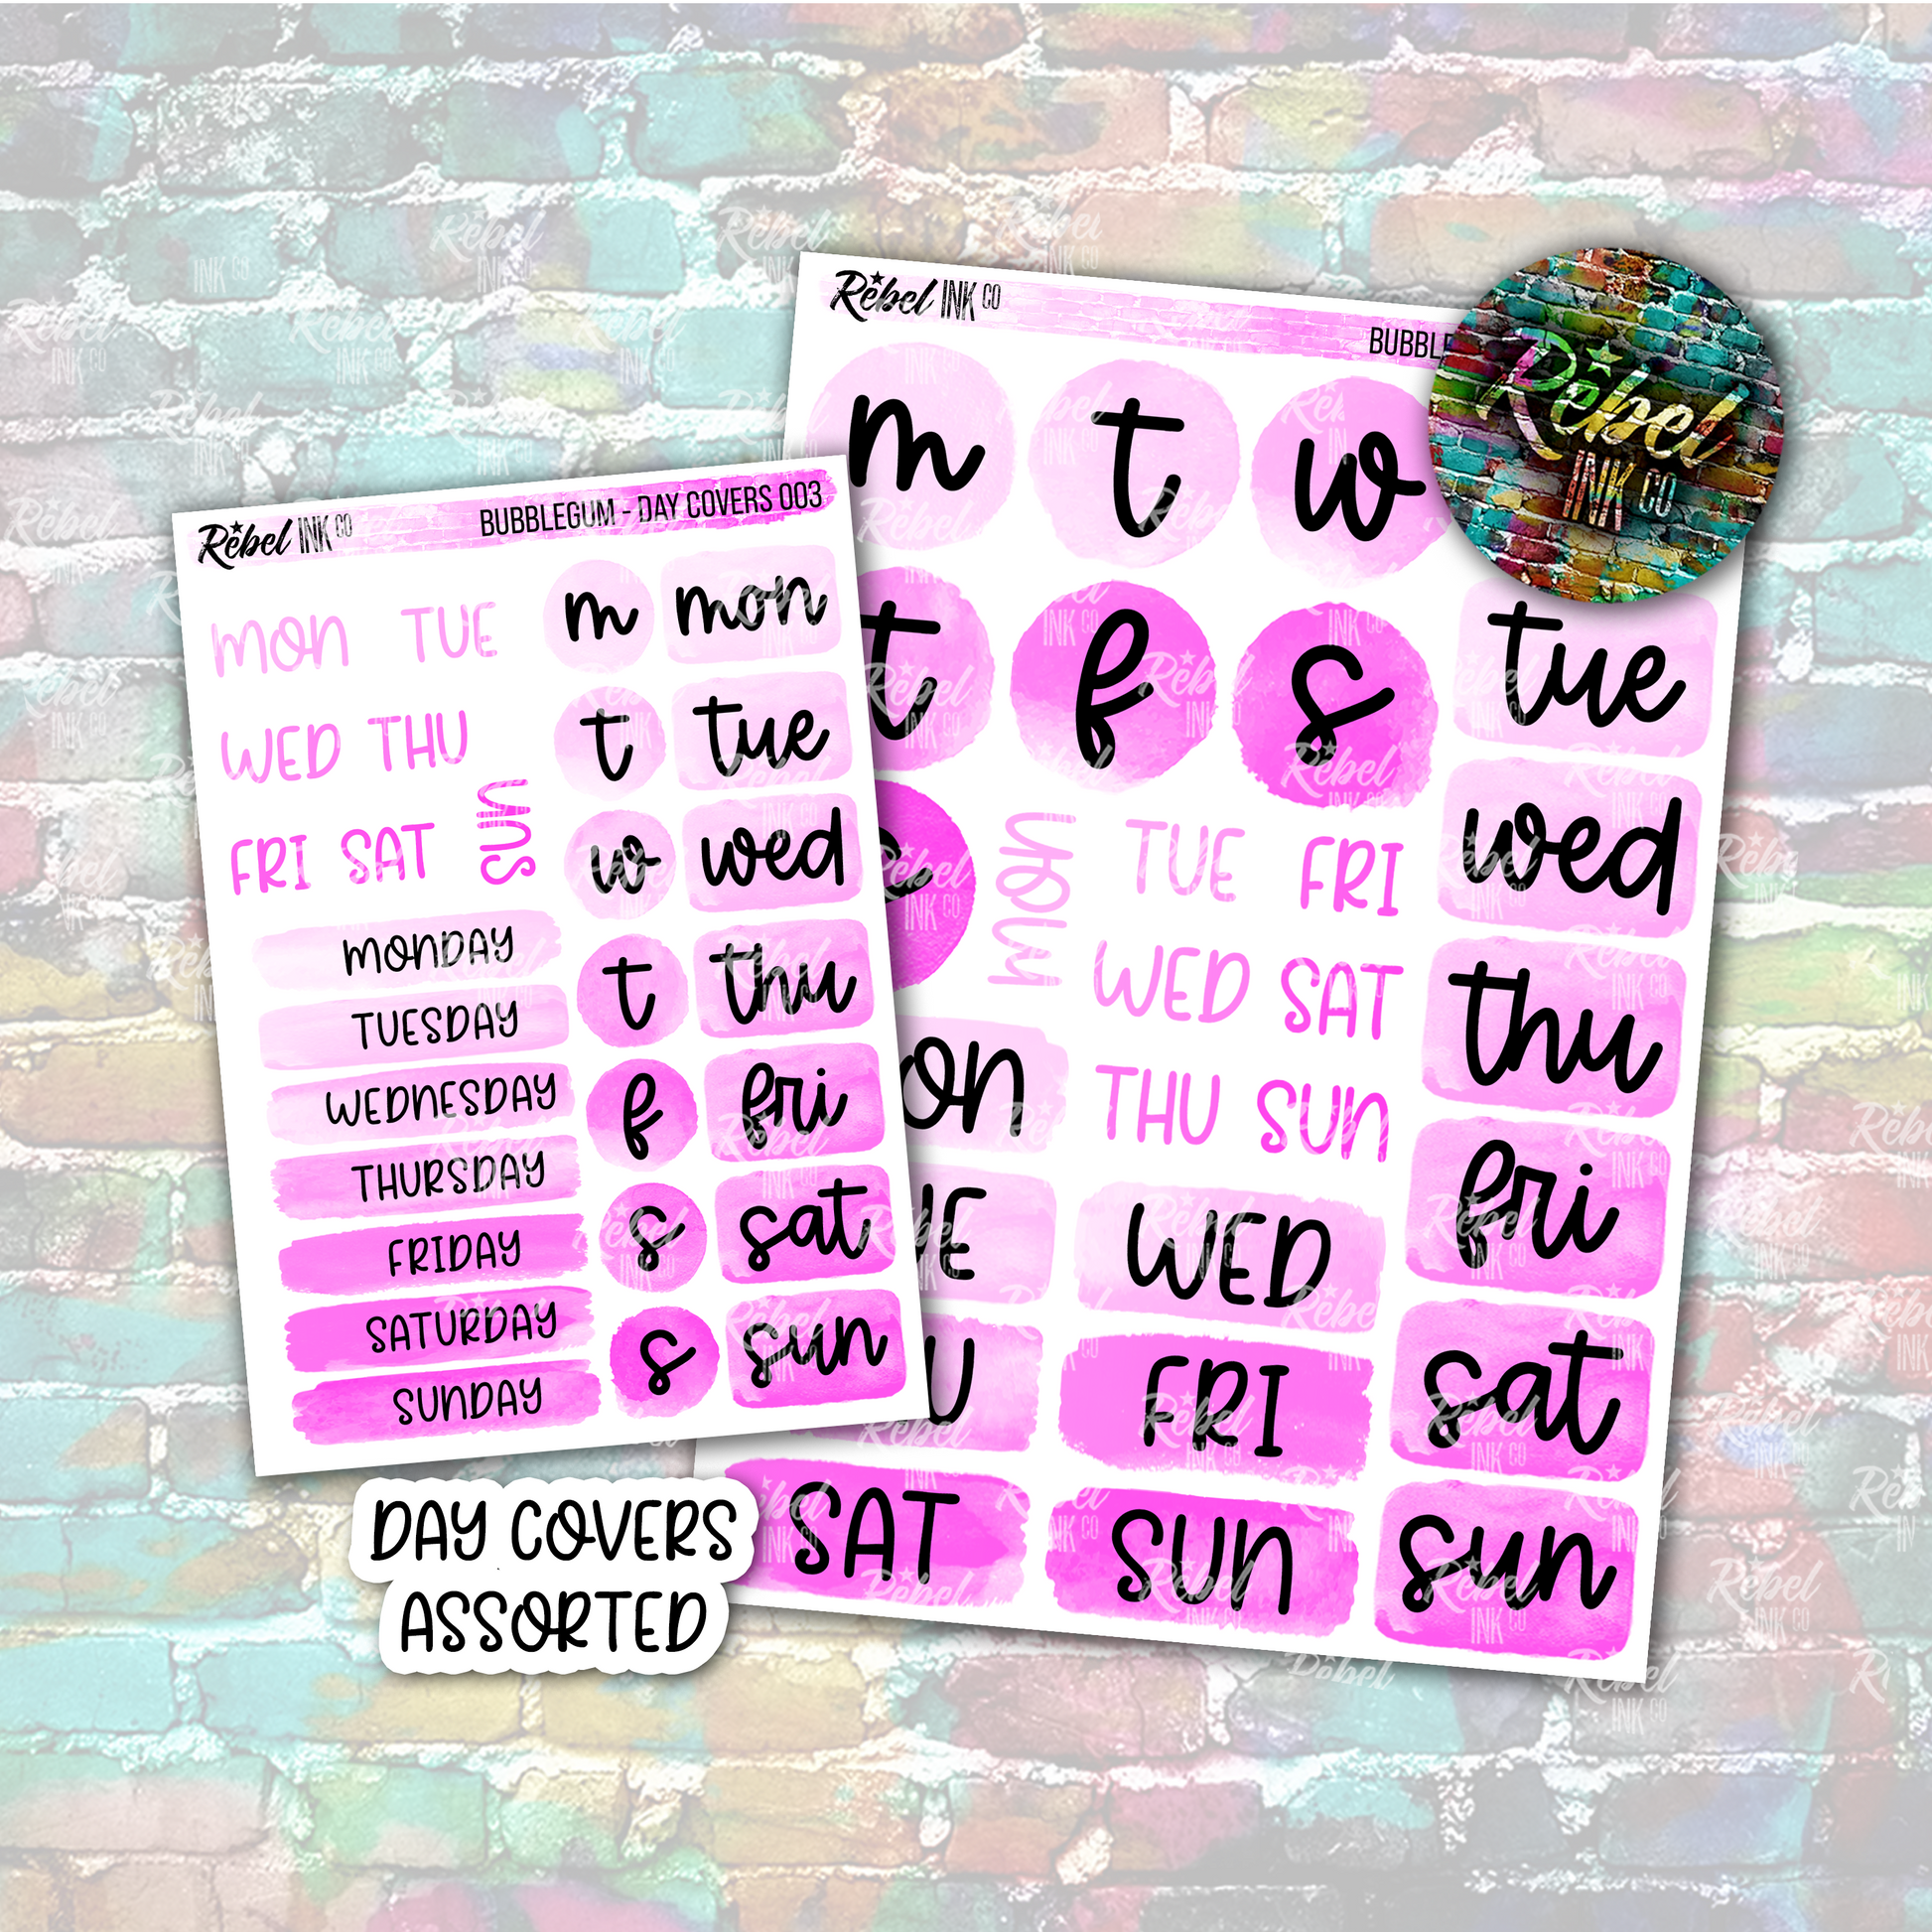 Rebel INK CO
BUBBLEGUM - DAY COVERS 003
MON TUE
WED THU
FRI SAT SUN
MONDAY
TUESDAY
WEDNESDAY
THURSDAY
FRIDAY
SATURDAY
SUNDAY
m mon
t tue
w wed
t thu
f fri
s sat
s sun
Rebel INK CO
BUBBLE
m t w
t f s
MON TUE FRI
WED SAT
THU SUN
ON
UE WED
U FRI
SAT SUN
tue
wed
thu
fri
sat
sun
Rebel
INK CO
DAY COVERS
ASSORTED